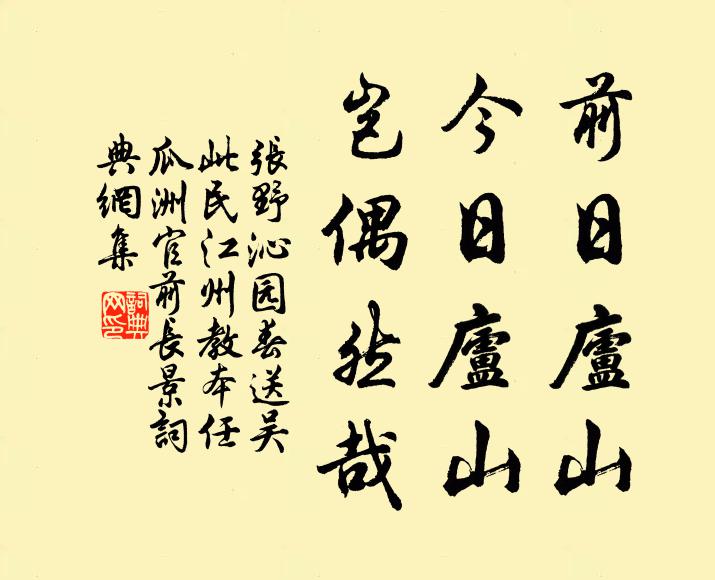 前日廬山
今日廬山
豈偶然哉
張野沁园春送吴
此民江州教本任
瓜洲官前長景詞
典網集
詞典网印